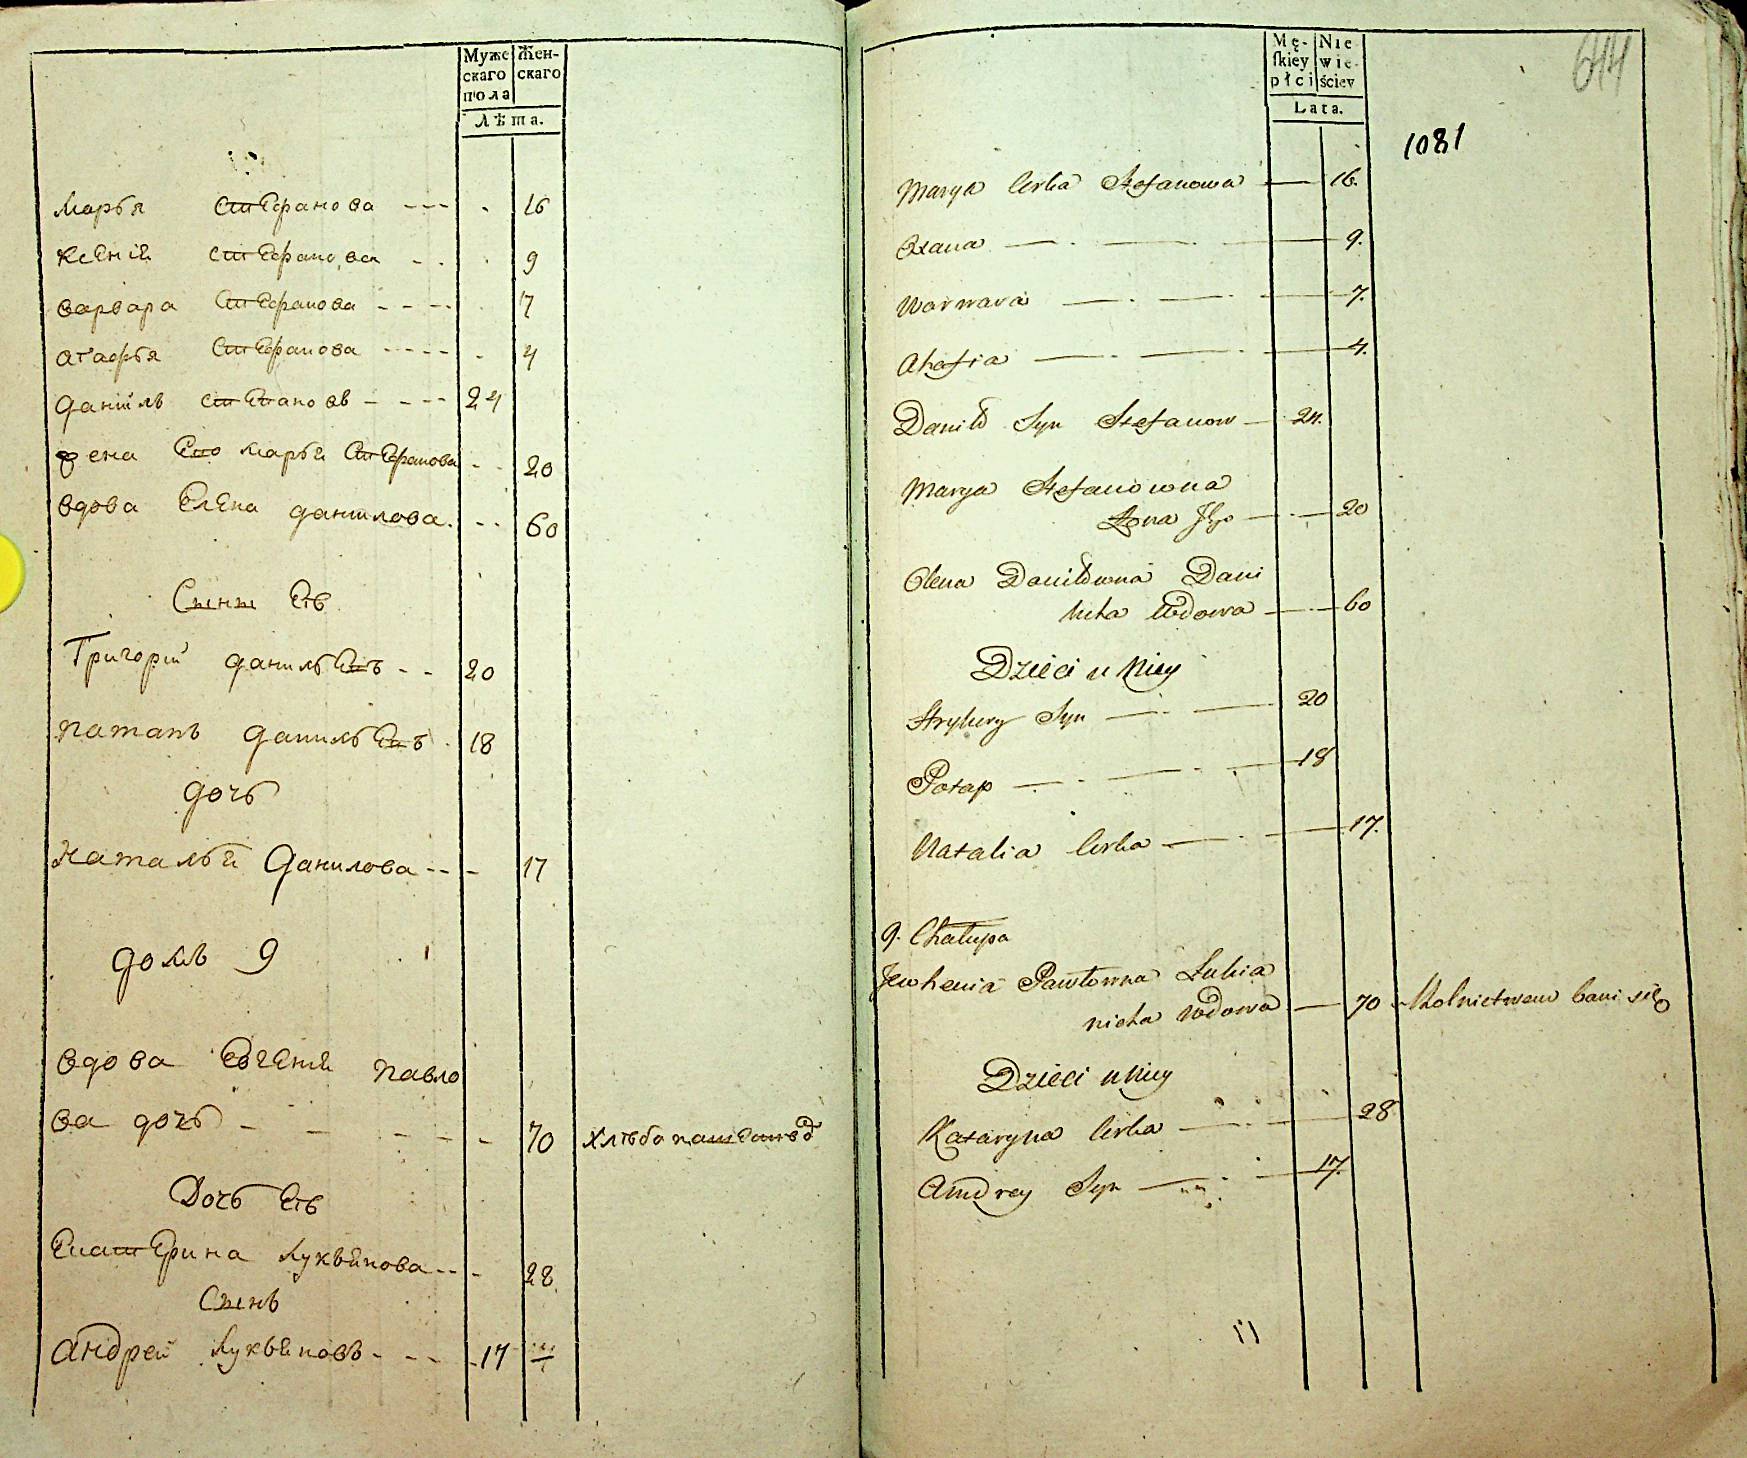 Муже Жен-
скаго скаго
пола
Лѣта.
Марья Стефанова 16
Ксенія Стефанова 9
Варвара Стефанова 7
Агафья Стефанова 4
Данилъ Степановъ 24
Жена Его Марья Стефанова 20
Вдова Елена Данилова 60
Сыны Ее
Григорій Данильевъ 20
Патапъ Данильевъ 18
Дочь
Наталья Данилова 17
Домъ 9
Вдова Евгенія Павло
ва дочь 70 Хлѣбопашествъ
Дочь Ее
Екатерина Лукьянова 28
Сынъ
Андрей Лукьяновъ 17
Mę- Nie
skiey wie-
płci ściey
Lata.
644
1081
Marya Corka Stefanowa 16.
Oxana 9.
Warwara 7.
Ahafia 4.
Daniło Syn Stefanow 24.
Marya Stefanowna
Żona Jego 20
Olena Daniłowna Dani
łucha Wdowa 60
Dzieci u Niey
Hryhory Syn 20
Potap 18
Natalia Corka 17.
9. Chałupa
Jewhenia Pawłowna Łukia
nicha Wdowa 70 Rolnictwem bawi się
Dzieci u Niey
Kataryna Corka 28
Andrey Syn 17.